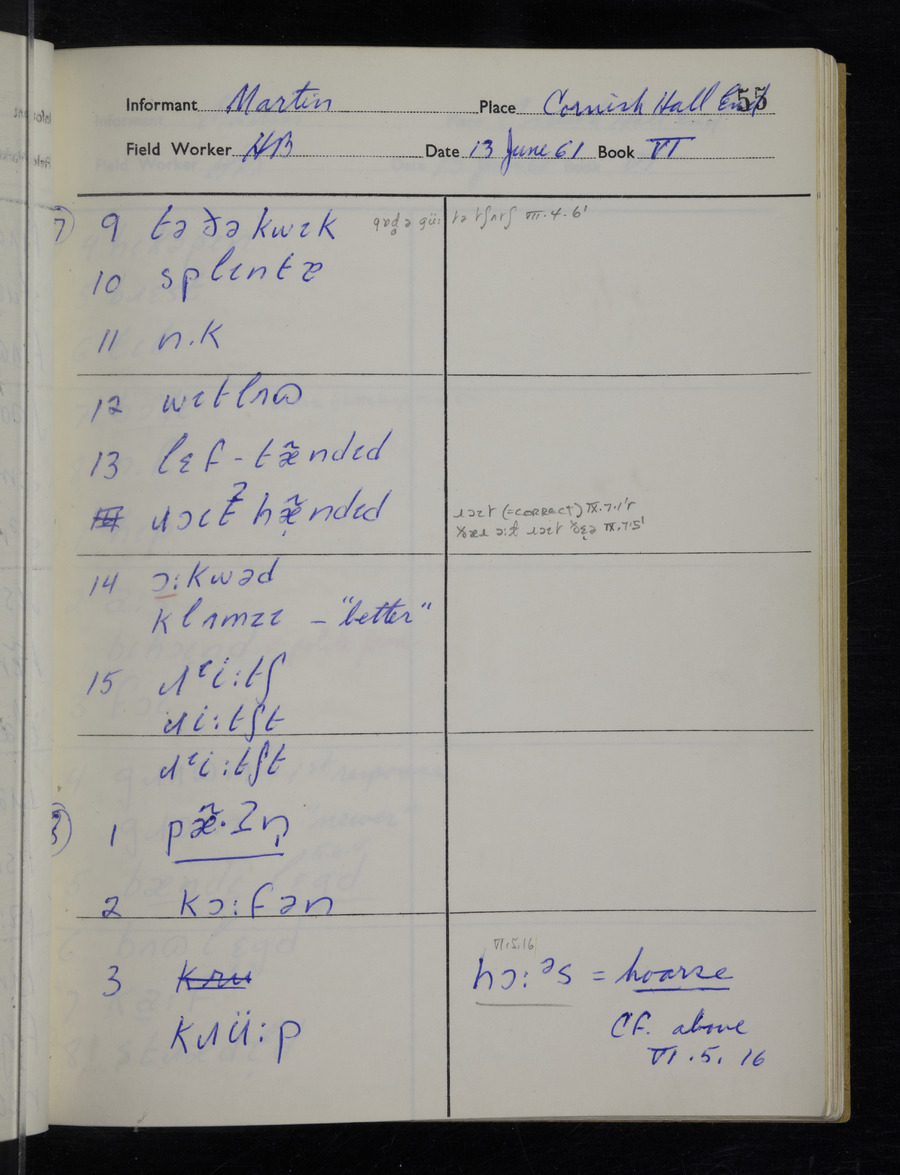 Informant Martin Place Cornish Hall End 55
Field Worker HB Date 13 June 61 Book VI
7) 9 tə ðə kwɪk
tə tʃʌtʃ VII.4.6'
10 splɪntə
11 n.k
12 wɪtlʌɷ
13 lɛf-tæ̃ndɪd
ɹɔɪt hæ̃ndɪd
ɹɔɪt (=CORRECT) IX.7.1'r
IX.7.5'
14 ɔ:kwəd
klʌmzɪ - "better"
15 ɹᶦi:tʃ
ɹi:tʃt
ɹᶦi:tʃt
8) 1 pæ̃·ʔn̩
2 kɔ:fən
3 kru
VI.5.16
hɔ:ᵊs = hoarse
kɹü:p
Cf. above
VI.5.16